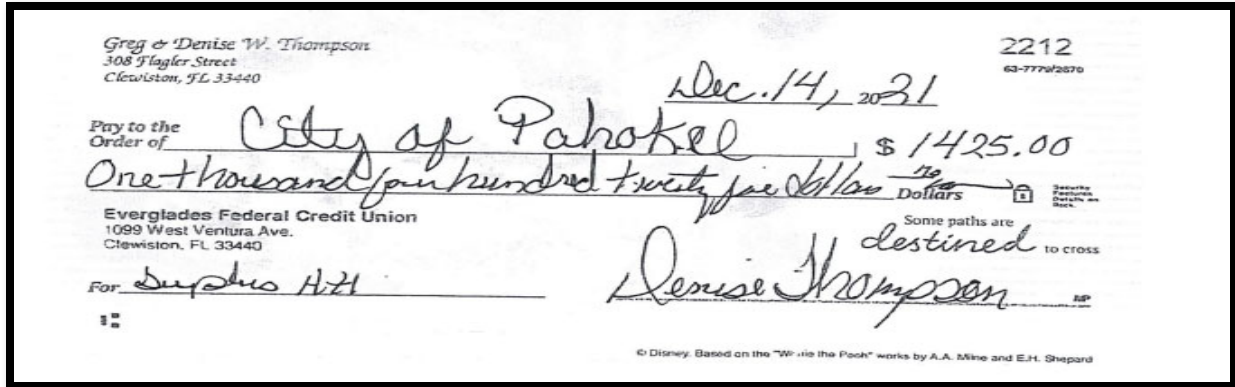 Greg & Denise W. Thompson
308 Flagler Street
Clewiston, FL 33440
2212
63-7779/2670
Dec. 14, 2021
Pay to the
Order of City of Pahokee $ 1425.00
One thousand four hundred twenty five dollars no Dollars
Security
Features
Details on
Back.
Everglades Federal Credit Union
1099 West Ventura Ave.
Clewiston, FL 33440
Some paths are
destined to cross
For Surplus H-H
Denise Thompson MP
© Disney. Based on the "Winnie the Pooh" works by A.A. Milne and E.H. Shepard